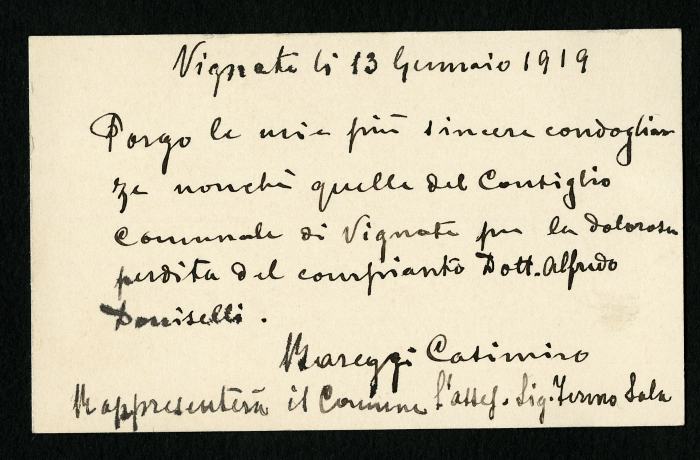 Vignate li 13 Gennaio 1919
Porgo le mie più sincere condoglian
ze nonchè quelle del Consiglio
Comunale di Vignate per la dolorosa
perdita del compianto Dott. Alfredo
Doniselli.
Mareggi Casimiro
Rappresenterà il Comune l'assess. Sig. Fermo Sala